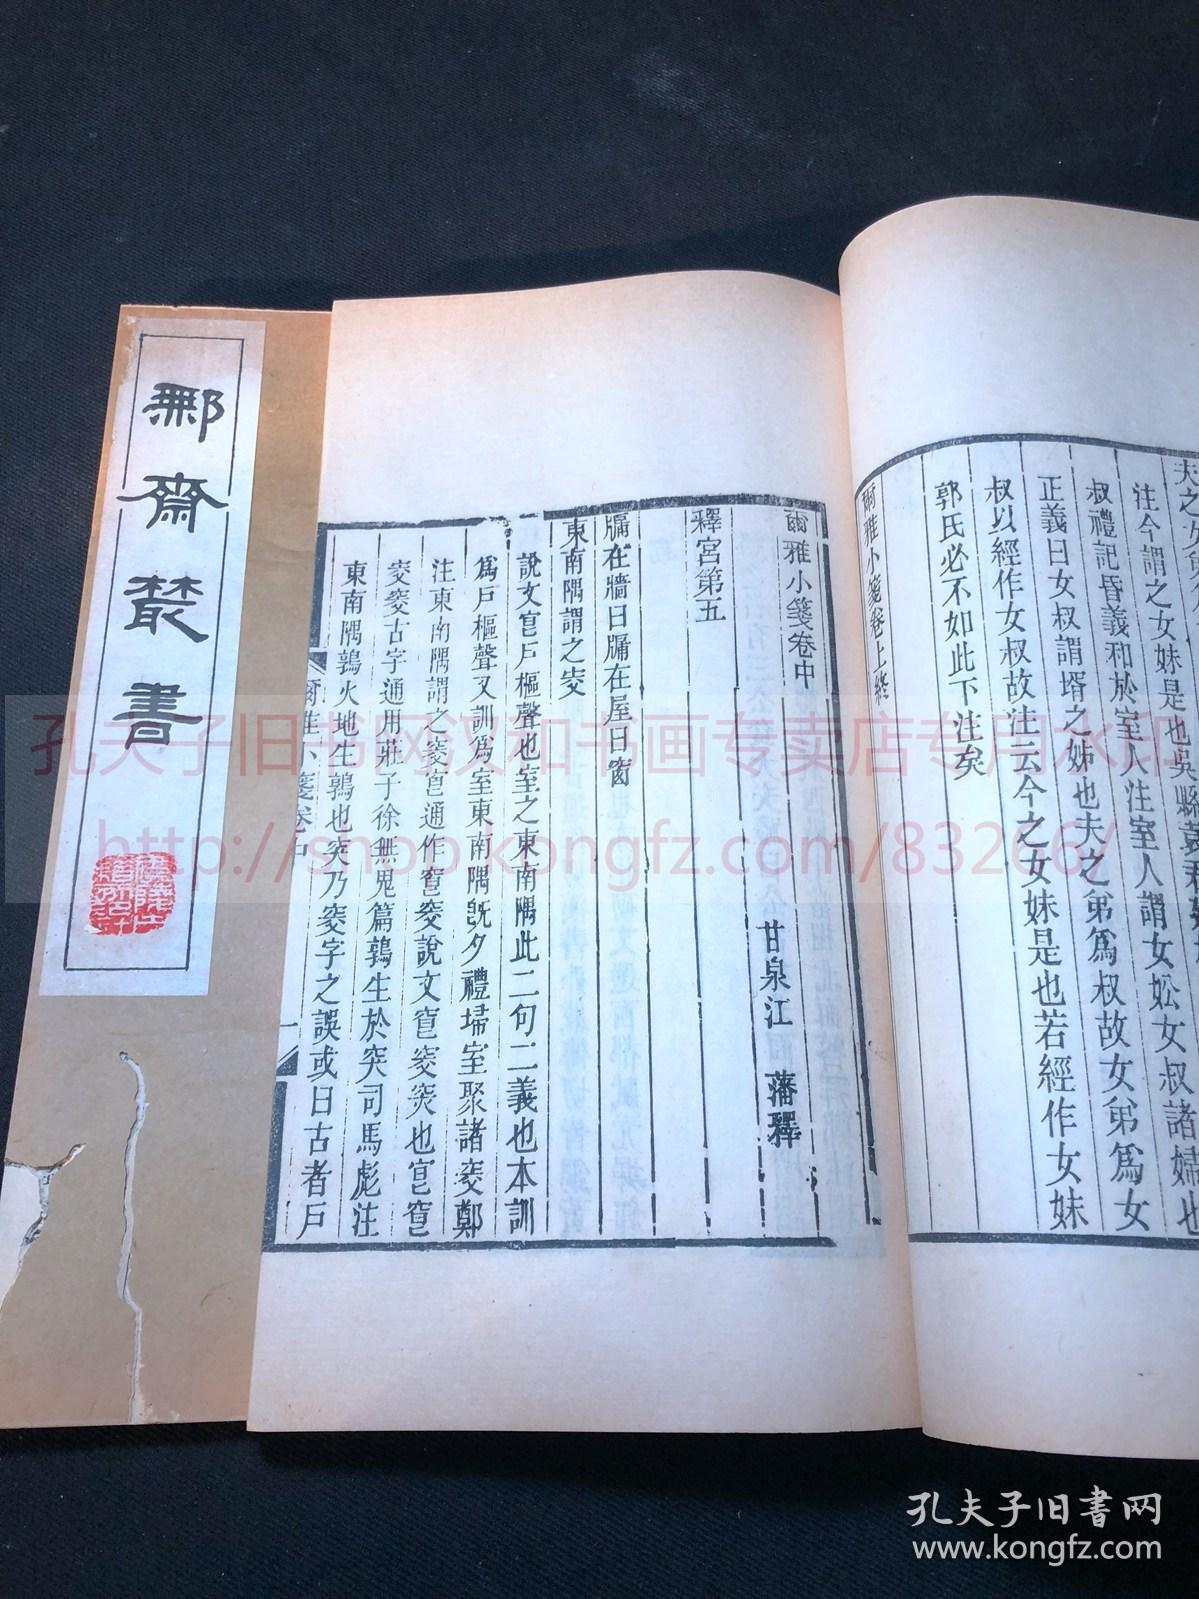 夫之
注今謂之女妹是也吳縣
叔禮記昏義和於室人注室人謂女妐女叔諸婦也
正義曰女叔謂壻之姊也夫之弟爲叔故女弟爲女
叔以經作女叔故注云今之女妹是也若經作女妹
郭氏必不如此下注矣
爾雅小箋卷上終
爾雅小箋卷中
甘泉江 藩釋
釋宮第五
牖在牆曰牖在屋曰窗
東南隅謂之㝔
說文㝔戶樞聲也室之東南隅此二句二義也本訓
爲戶樞聲又訓爲室東南隅旣夕禮埽室聚諸㝔鄭
注東南隅謂之㝔
東南隅鶉火地生鶉也突乃㝔字之誤或曰古者戶
爾雅小箋卷中
一
鄦齋叢書
孔夫子旧书网汉和书画专卖店专用水印
http://shop.kongfz.com/83266/
孔夫子旧书网
www.kongfz.com